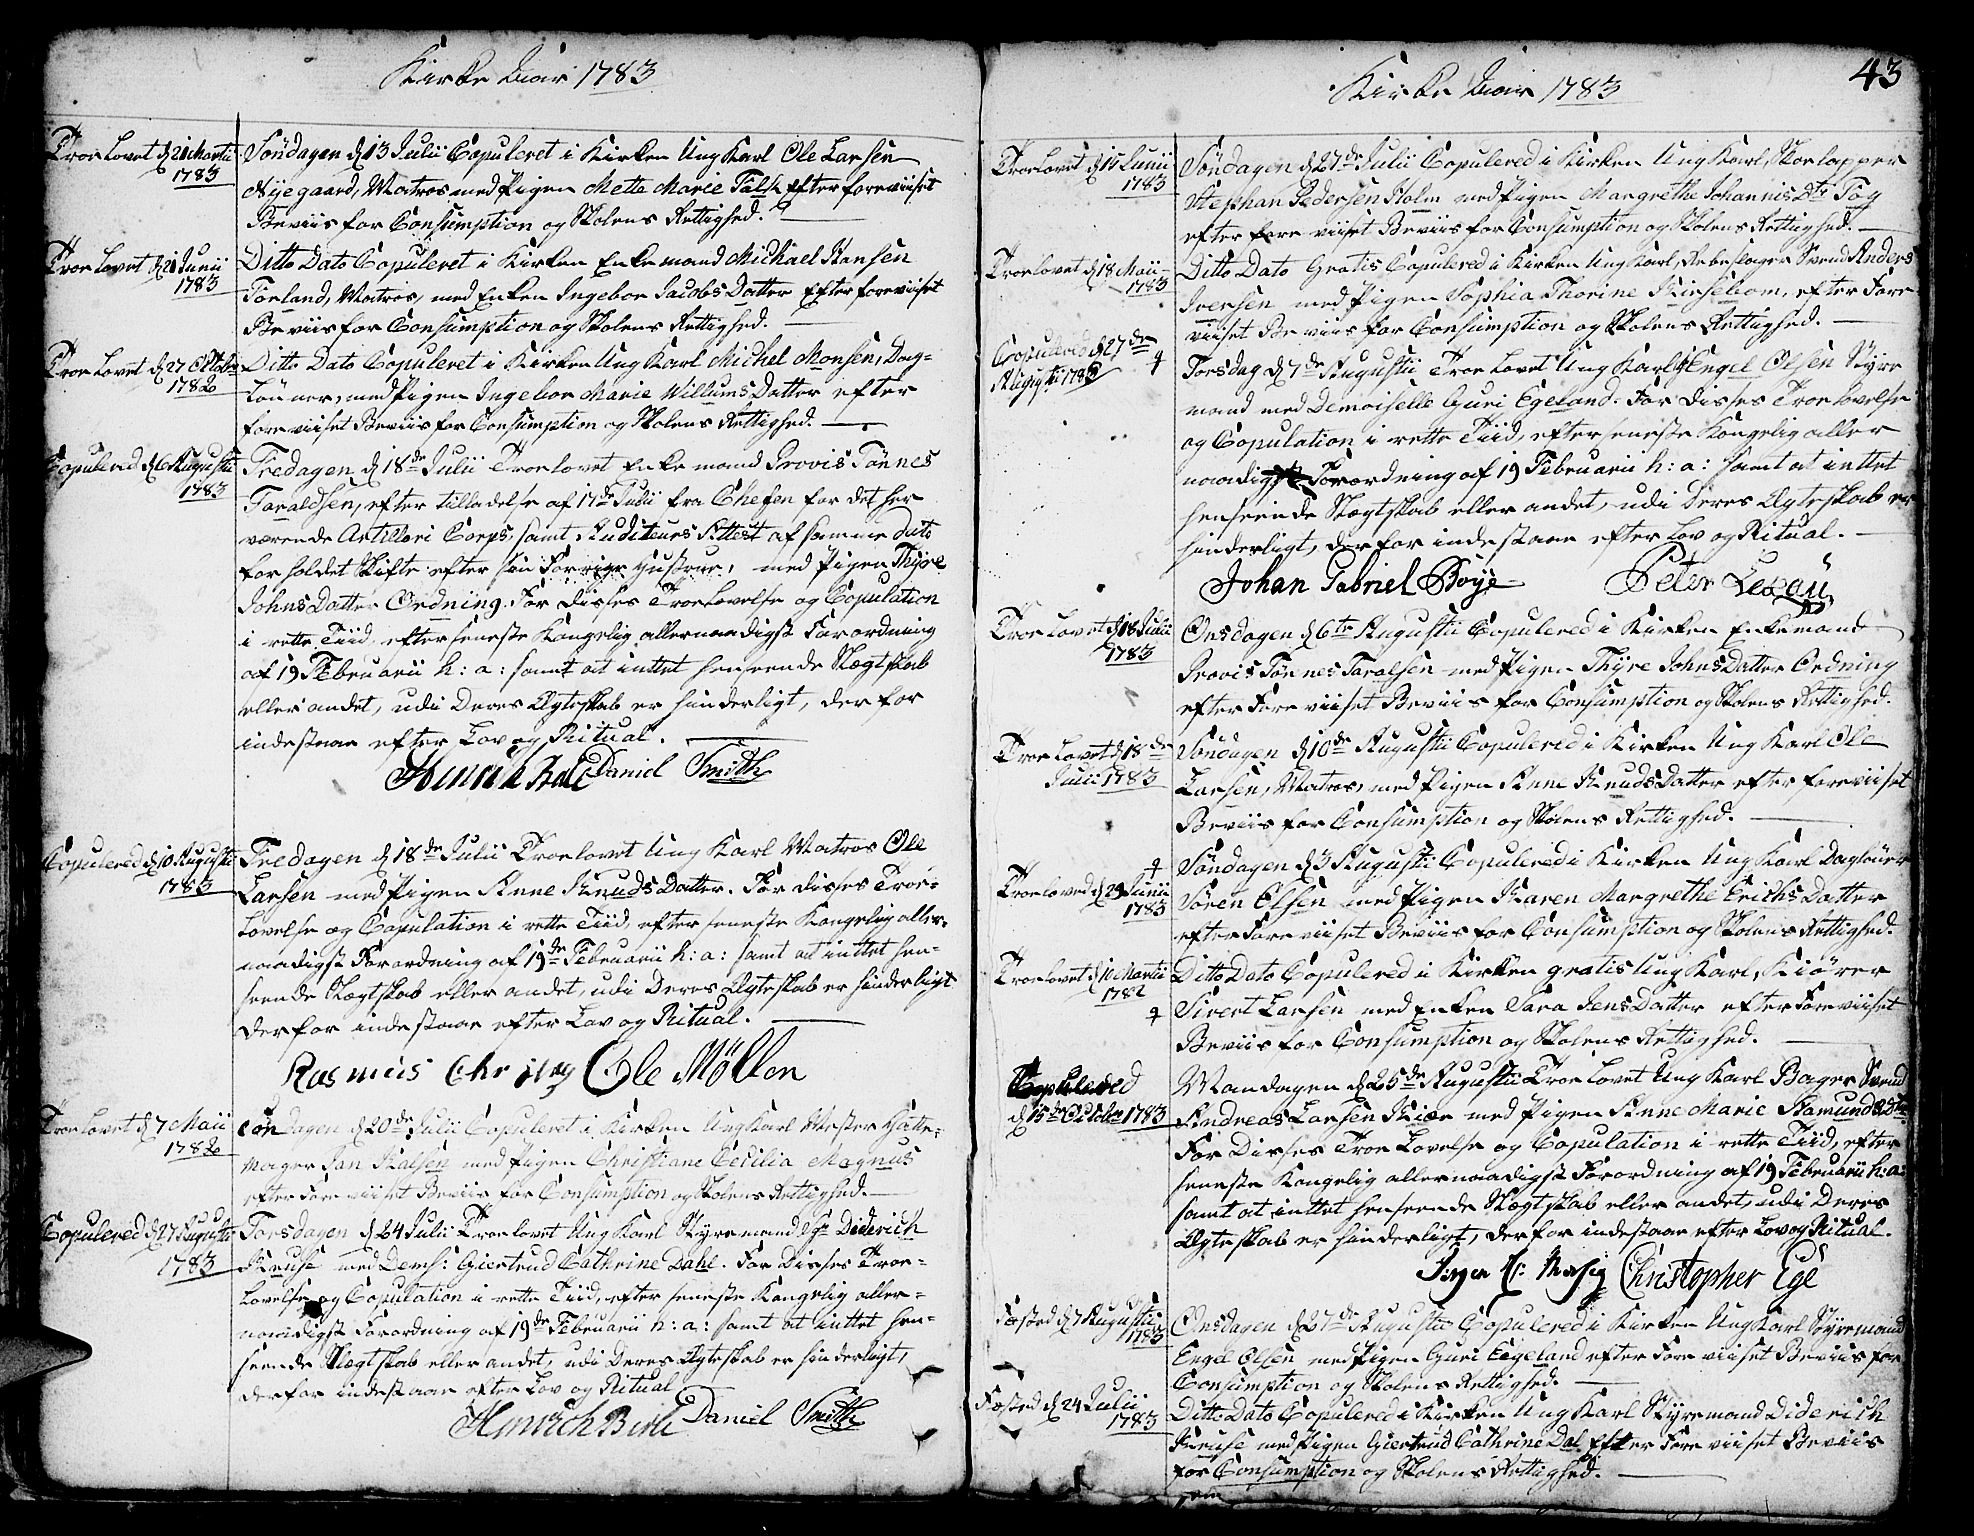 Kirke Aar 1783
Troelovet d 21 Martii
1783
Söndagen d 13 Julii Copuleret i Kirken Ung Karl Ole Larsen
Nyegaard, Matros med Pigen Mette Marie Falk efter foreviiset
Beviis for Consumption og Skolens Rettighed.
Troelovet d 21 Junii
1783
Ditto Dato Copuleret i Kirken Enkemand Michael Hansen
Torland, Matros, med Enken Ingebor Jacobs Datter Efter foreviiset
Beviis for Consumption og Skolens Rettighed.
Troelovet d 27 Octobr
1782
Ditto Dato Copuleret i Kirken Ung Karl Michel Monsen, Dag-
Lönner, med Pigen Ingebor Marie Willums Datter efter
foreviiset Beviis for Consumption og Skolens Rettighed.
Copulered d 6 Augustii
1783
Fredagen d 18de Julii Troelovet Enkemand Provis Tönnes
Taraldsen, efter tilladelse af 17de Julii fra Chefen for det her
værende Artilleri Corps, samt Auditeurs Attest af samme dato
for holdet Skifte efter sin Forrige Hustrue, med Pigen Thyre
Johns Datter Ordning. For disses Troelovelse og Copulation
i rette Tiid, efter seneste Kongelig allernaadigst Forordning
af 19 Februarii h: a: samt at inttet henseende Slægtskab
eller andet, udi Deres Ægteskab er hinderligt, derfor
indestaar efter Lov og Ritual.
Daniel Smith
Copulered d 10 Augusti
1783
Fredagen d 18de Julii Troelovet Ung Karl Matros Ole
Larsen med Pigen Anne Knuds Datter. For disses Troe-
Lovelse og Copulation i rette Tiid, efter seneste Kongelig aller-
naadigst Forordning af 19de Februarii h: a: samt at inttet hen-
seende Slægtskab eller andet, udi Deres Ægteskab er hinderligt
derfor indestaar efter Lov og Ritual.
Rasmus Ole Möllen
Troelovet d 7 Maii
1782
Söndagen d 20de Julii Copuleret i Kirken Ung Karl Mester Hatte-
mager Jan Kalsen med Pigen Christiane Cecilia Magnus
efter Foreviiset Beviis for Consumption og Skolens Rettighed.
Copulered d 27 Augusti
1783
Torsdagen d 24 Julii Troelovet Ung Karl Styremand Sr Diderich
Kruse med Dems: Giertrud Cathrine Dahl. For Disses Troe-
Lovelse og Copulation i rette Tiid, efter seneste Kongelig aller-
naadigst Forordning af 19de Februarii h: a: samt at inttet hen-
seende Slægtskab eller andet, udi Deres Ægteskab er hinderligt,
derfor indestaar efter Lov og Ritual
Daniel Smith
Kirke Aar 1783
43
Troelovet d 15 Junii
1783
Söndagen d 27de Julii Copulered i Kirken Ung Karl, Skorlapper
Stephan Pedersen Holm med Pigen Margrethe Johannis Dtr Fog
efter foreviiset Beviis for Consumption og Skolens Rettighed.
Troelovet d 18 Maii
1783
Ditto Dato Gratis Copulered i Kirken Ung Karl, Rebeslager Svend Anders
Iversen med Pigen Sophia Thorine Kirsebom, efter Fore
viiset Beviis for Consumption og Skolens Rettighed.
Copulered d 27de
Augusti 1783
Torsdag d 7de Augustii Troelovet Ung Karl Engel Olsen Styre
mand med Demoiselle Guri Egeland. For Disses Troelovelse
og Copulation i rette Tiid, efter seneste Kongelig aller
naadigst Forordning af 19 Februarii h: a: samt at inttet
henseende Slægtskab eller andet, udi Deres Ægteskab er
hinderligt, derfor indestaar efter Lov og Ritual.
Johan Gabriel Boye Peter
Troelovet d 18 Julii
1783
Onsdagen d 6te Augustii Copulered i Kirken Enkemand
Provis Tönnes Taralsen med Pigen Thyre Johns Datter Ordning
efter Foreviiset Beviis for Consumption og Skolens Rettighed.
Troelovet d 18de
Julii 1783
Söndagen d 10de Augustii Copulered i Kirken Ung Karl Ole
Larsen, Matros, med Pigen Anne Knuds Datter efter foreviiset
Beviis for Consumption og Skolens Rettighed.
Troeloved d 29 Junii
1783
Söndagen d 3 Augustii Copulered i Kirken Ung Karl Daglöner
Sören Elsen med Pigen Karen Margrethe Erichs Datter
efter Foreviiset Beviis for Consumption og Skolens Rettighed.
Troelovet d 10 Martii
1782
Ditto Dato Copulered i Kirken gratis Ung Karl, Kiörer
Sivert Larsen med Enken Sara Jens Datter efter Foreviiset
Beviis for Consumption og Skolens Rettighed.
Copulered
d 15de Octobr 1783
Mandagen d 25de Augustii Troelovet Ung Karl Bager Svend
Andreas Larsen Kiær med Pigen Anne Marie Aamunds Dtr.
For Disses Troe Lovelse og Copulation i rette Tiid, efter
seneste Kongelig allernaadigst Forordning af 19 Februarii h: a:
samt at inttet henseende Slægtskab eller andet, udi Deres
Ægteskab er hinderligt, derfor indestaar efter Lov og Ritual.
Christopher Ege
Fæsted d 7 Augustii
1783
Onsdagen d 27de Augustii Copulered i Kirken Ung Karl Styremand
Engel Olsen med Pigen Guri Eigeland efter Foreviiset Beviis for
Consumption og Skolens Rettighed.
Fæsted d 24 Julii
1783
Ditto Dato Copulered i Kirken Ung Karl Styremand Diderich
Kruse med Pigen Giertrud Cathrine Dal. Efter Foreviiset Beviis
for Consumption og Skolens Rettighed.